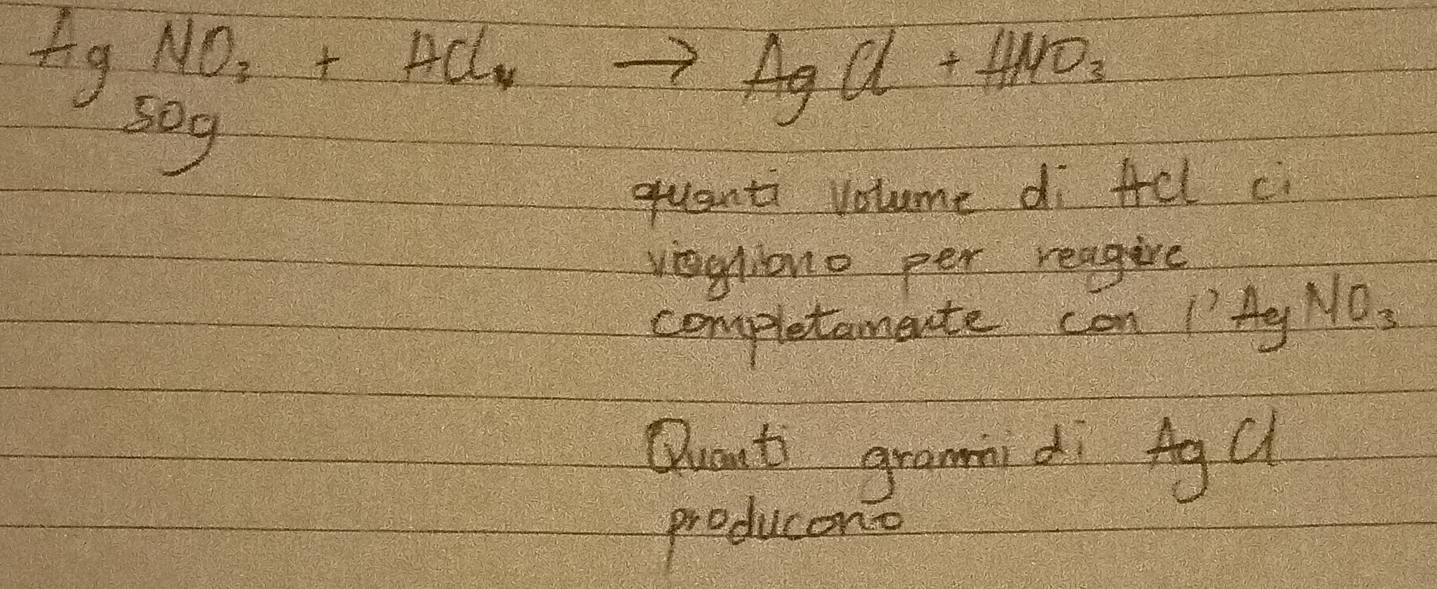 AgNO₃ + HCl → AgCl + HNO₃
50g
quanti volume di HCl ci
vogliono per reagire
completamente con l'AgNO₃
Quanti grammi di AgCl
producono